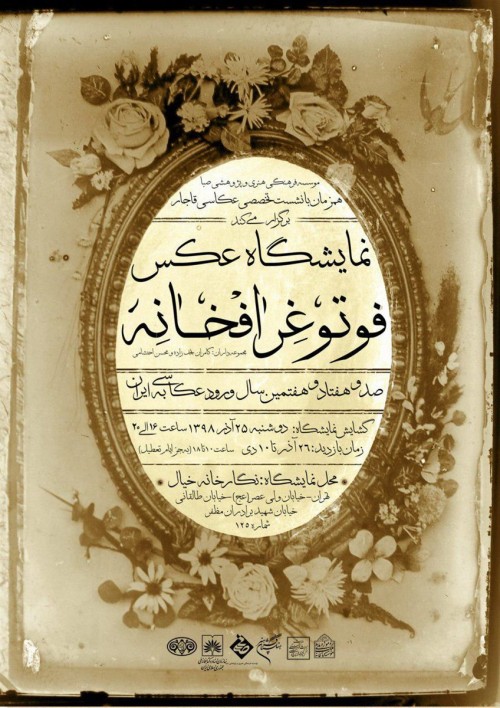 موسسه فرهنگی هنری و پژوهشی صبا
همزمان با نشست تخصصی عکاسی قاجار
برگزار می‌کند
نمایشگاه عکس
فوتوغرافخانه
مجموعه‌داران: کامران نجف‌زاده و محسن احتشامی
صد و هفتاد و هفتمین سال ورود عکاسی به ایران
گشایش نمایشگاه: دوشنبه ۲۵ آذر ۱۳۹۸ ساعت ۱۶ الی ۲۰
زمان بازدید: ۲۶ آذر تا ۱۰ دی ساعت ۱۰ تا ۱۸ (به‌جز ایام تعطیل)
محل نمایشگاه: نگارخانه خیال
تهران-خیابان ولی عصر(عج)-خیابان طالقانی
خیابان شهید برادران مظفر
شماره ۱۲۵